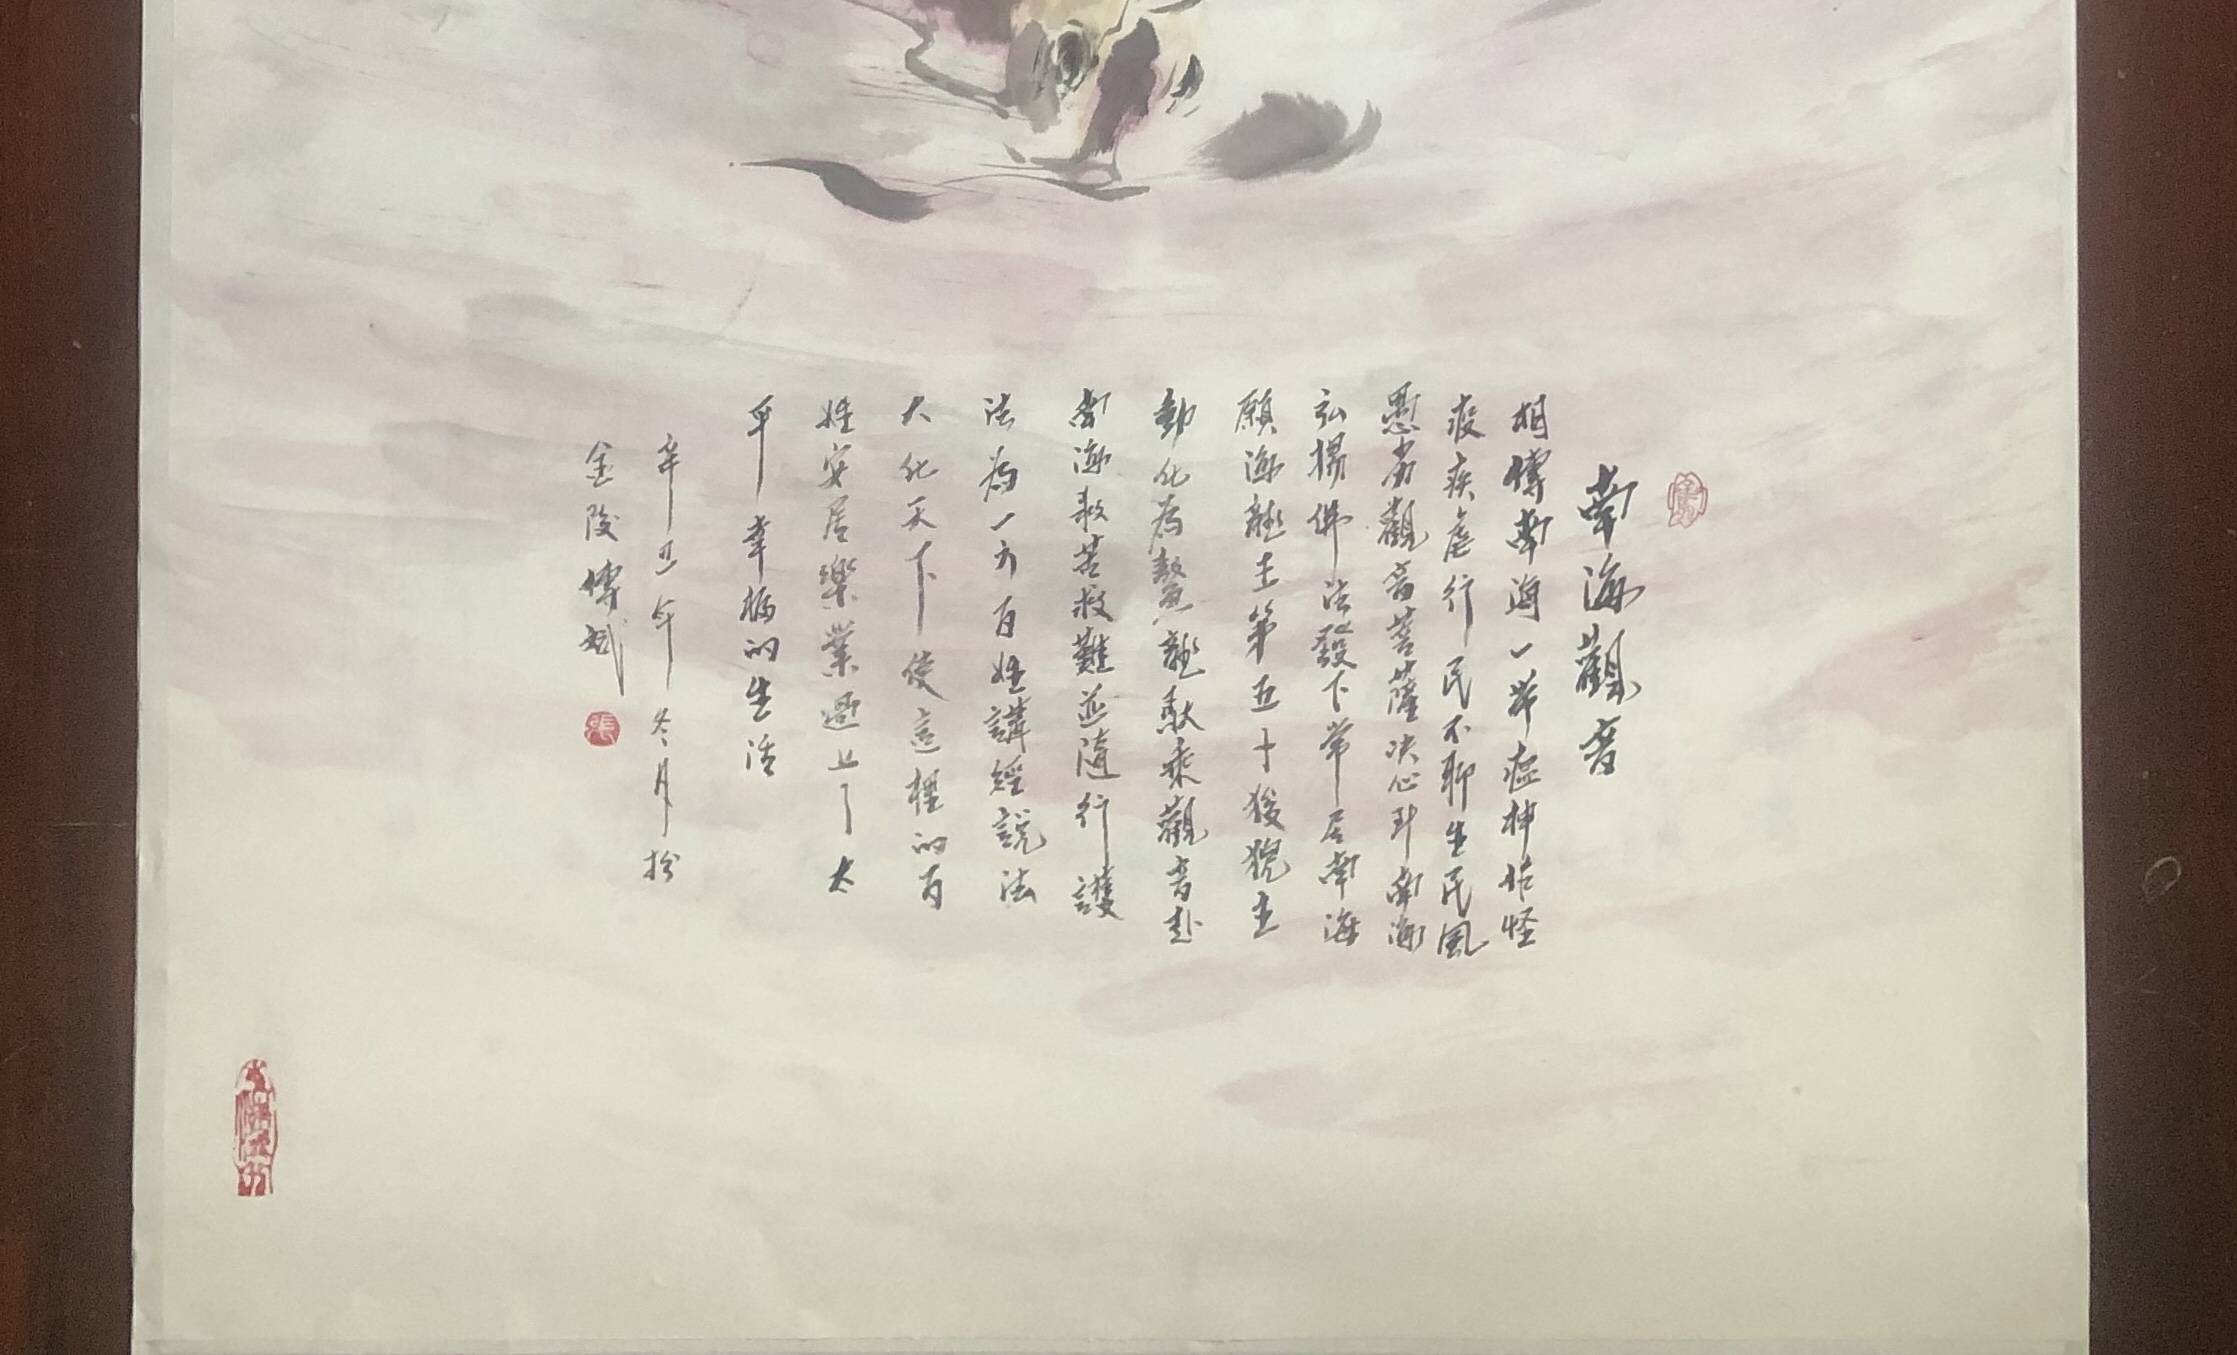 南海觀音
相傳南海一帶瘟神作怪
疫疾虐行民不聊生民風
愚劣觀音菩薩决心到南海
弘揚佛法發下常居南海
願海龍王第五子狻猊主
動化為鰲龍馱乘觀音赴
南海救苦救難並隨行護
法為一方百姓講經説法
大化天下使這裡的百
姓安居樂業過上了太
平幸福的生活
辛丑年冬月於
金陵傅斌
張